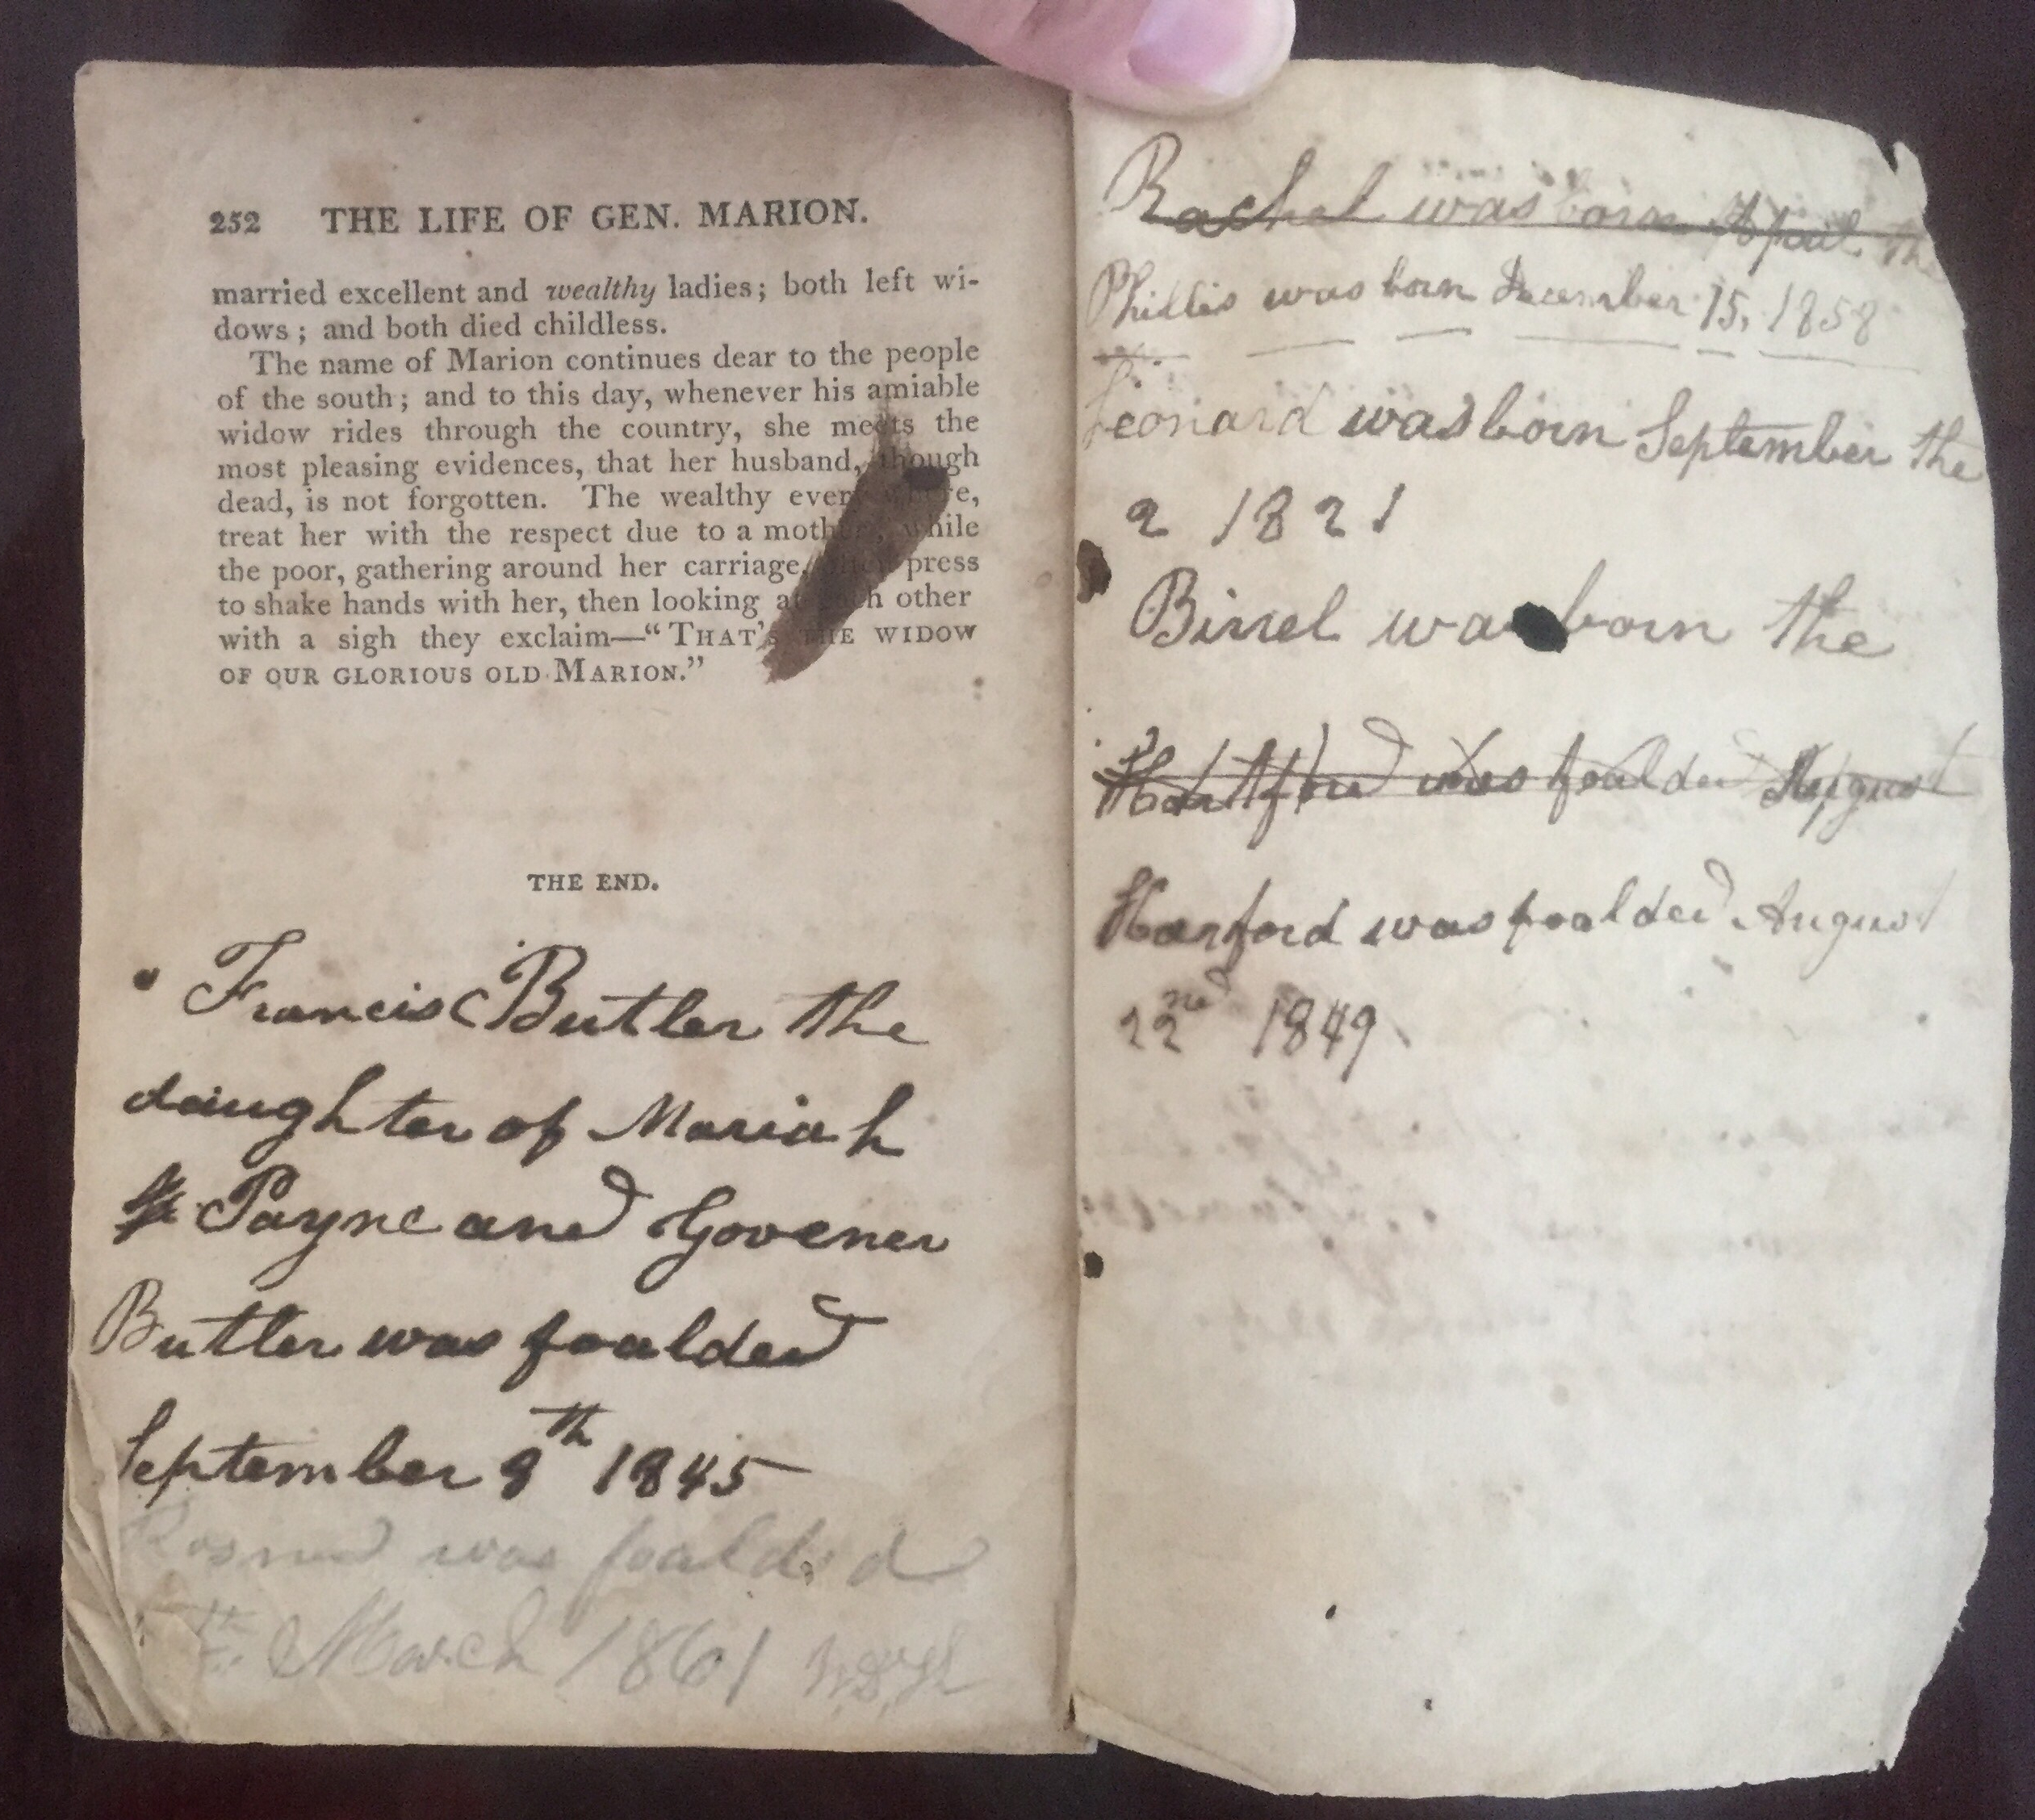 252 THE LIFE OF GEN. MARION.
married excellent and wealthy ladies; both left wi-
dows; and both died childless.
The name of Marion continues dear to the people
of the south; and to this day, whenever his amiable
widow rides through the country, she meets the
most pleasing evidences, that her husband, though
dead, is not forgotten. The wealthy every where,
treat her with the respect due to a mother, while
the poor, gathering around her carriage, often press
to shake hands with her, then looking at each other
with a sigh they exclaim—“THAT'S THE WIDOW
OF OUR GLORIOUS OLD MARION.”
THE END.
Francis Butler the
daughter of Mariah
Payne and Govener
Butler was foalded
September 8th 1845
was foalded
March 1861
Rachel was born April the
Phillis was born December 15, 1858
Leonard was born September the
2 1821
Birrel was born the
Hartford was foalded August
Harford was foalded August
22nd 1849